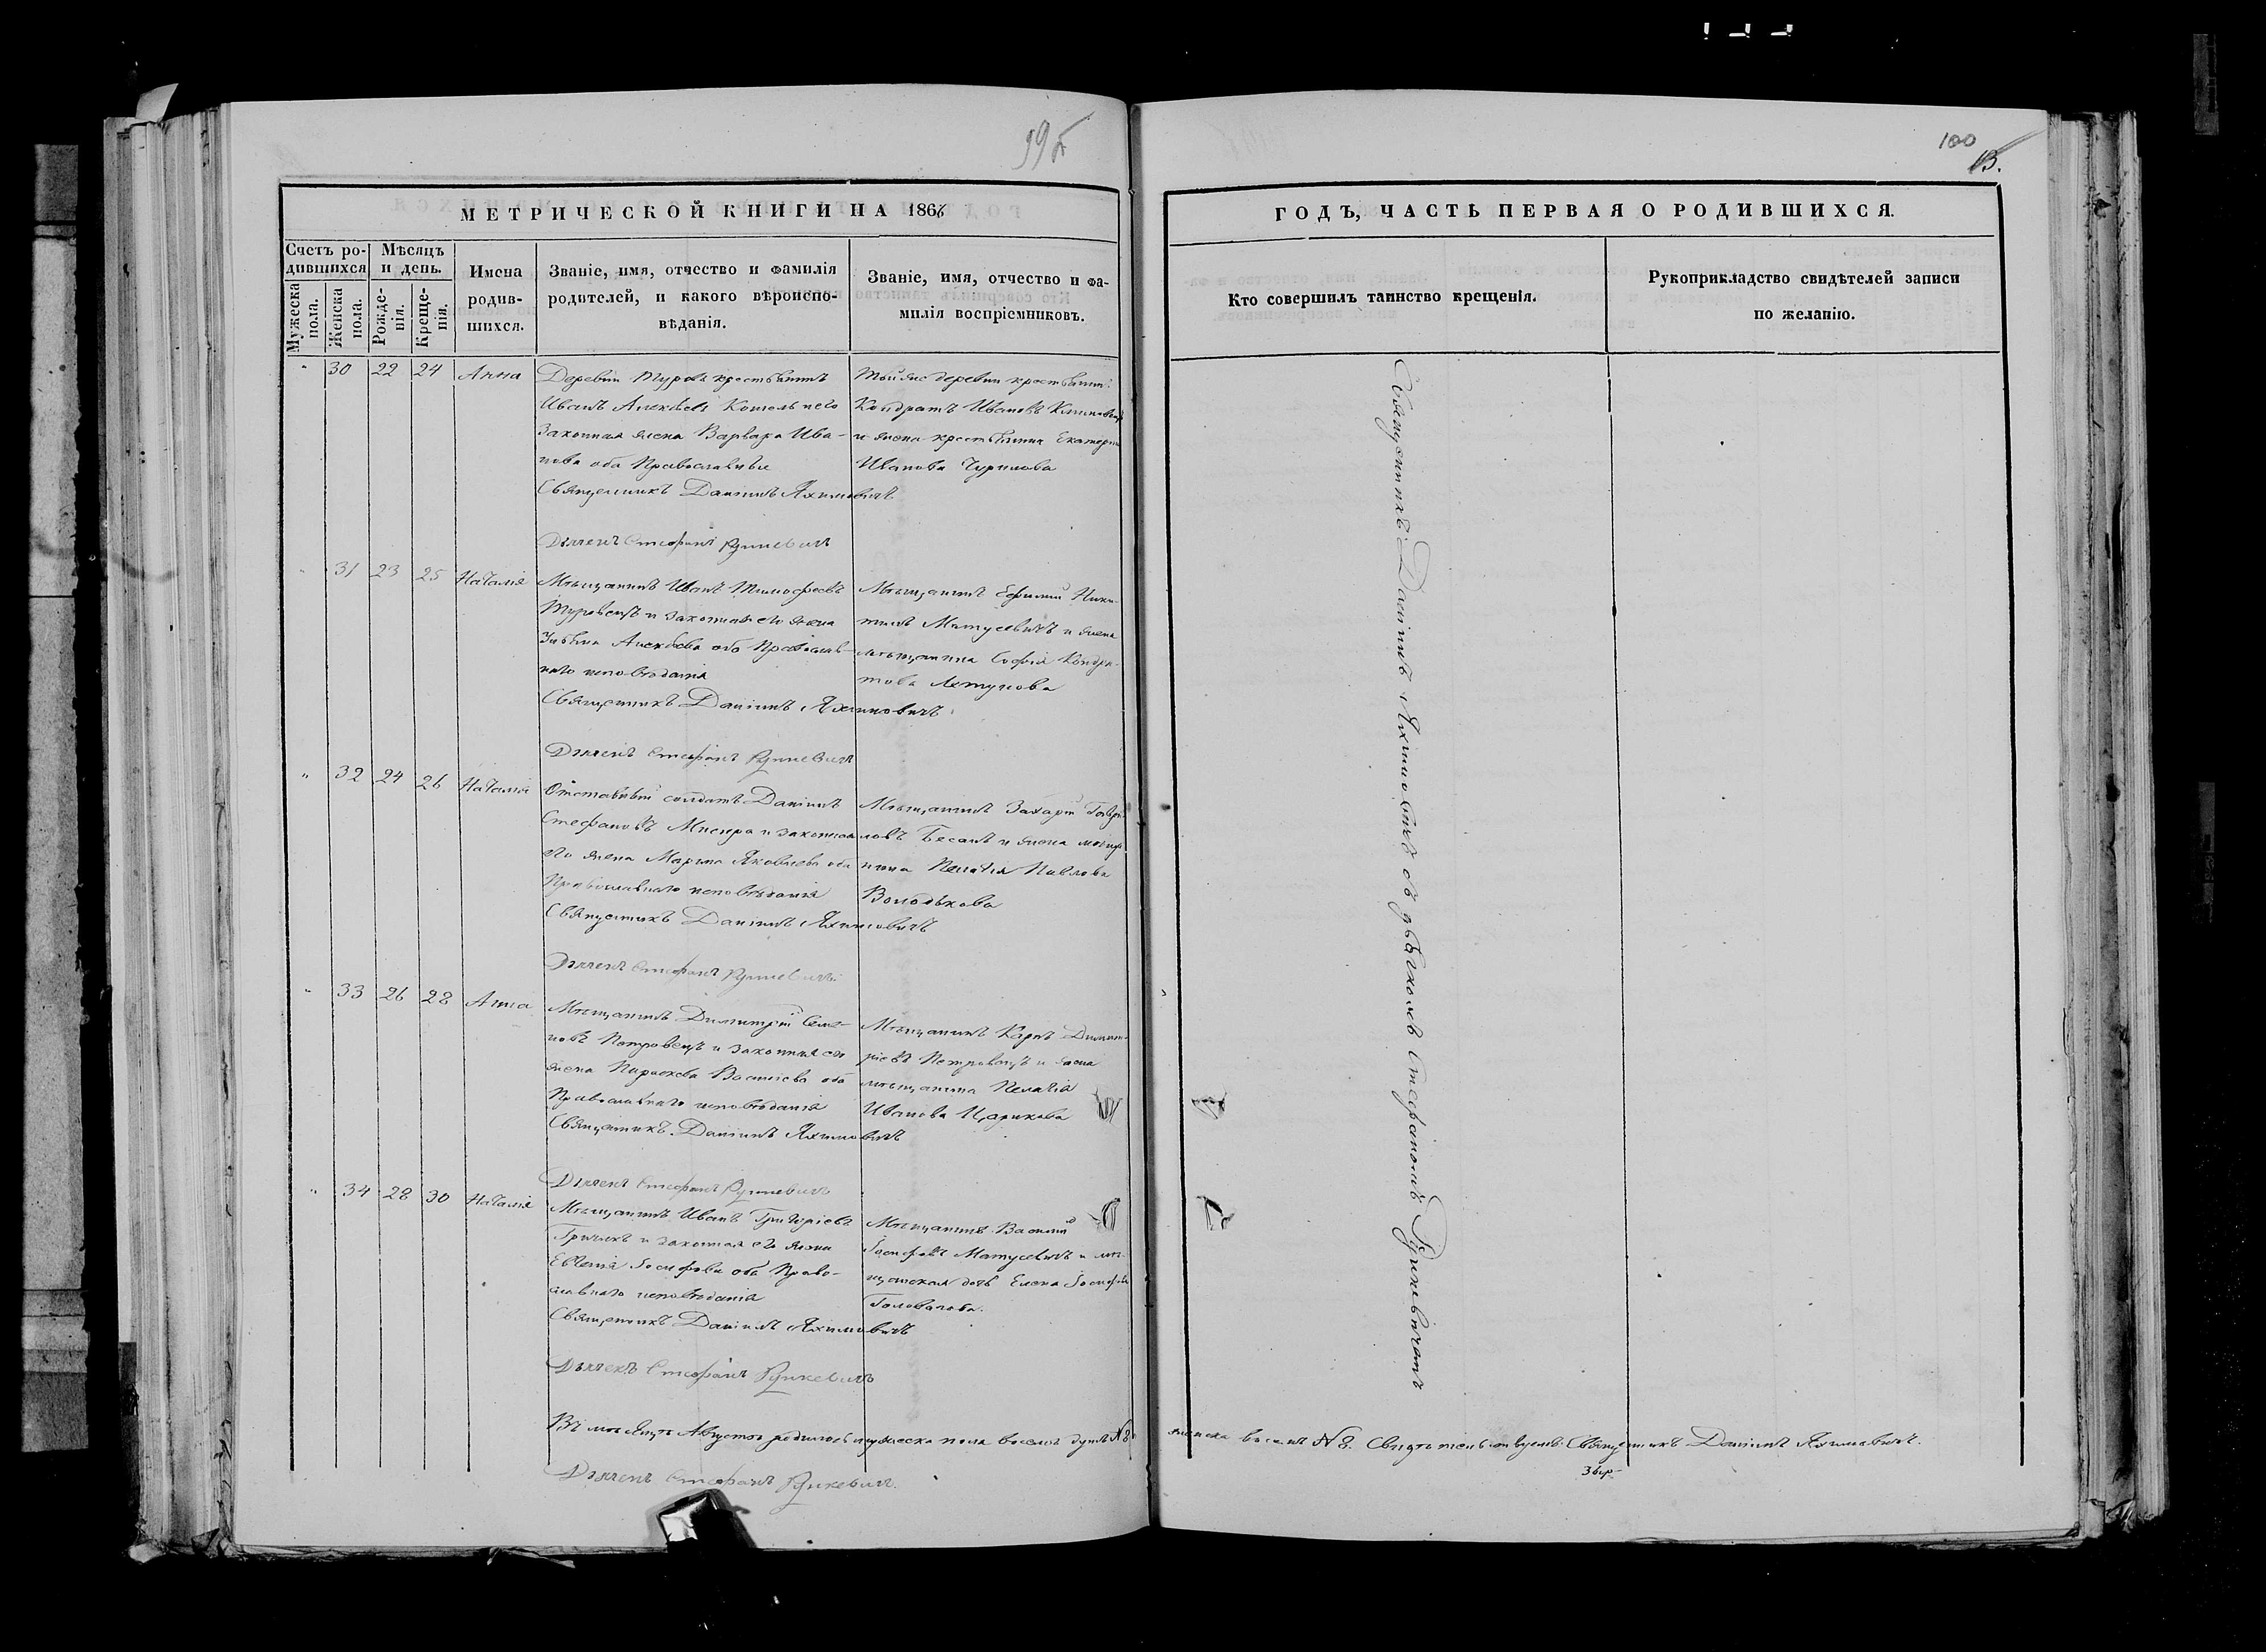 99б
МЕТРИЧЕСКОЙ КНИГИ НА 1866
Счетъ ро-
дившихся
Мѣсяцъ
и день.
Мужеска
пола.
Женска
пола.
Рожде-
нія.
Креще-
нія.
Имена
родив-
шихся.
Званіе, имя, отчество и фамилія
родителей, и какого вѣроиспо-
вѣданія.
Званіе, имя, отчество и фа-
милія воспріемниковъ.
" 30 22 24 Анна
Деревни Туровъ крестьянинъ
Иванъ Алексѣевъ его
Законная жена Варвара Ива-
нова оба Православные
Священникъ Даніилъ Яхимовичъ.
Дьячекъ Стефанъ Рункевичъ
Той же деревни крестьянин
Кондратъ Ивановъ
и жена крестьянина Екатерин
Иванова Чурилова
" 31 23 25 Наталія
Мѣщанинъ Иванъ Тимофеевъ
Туровецъ и законная его жена
Улѣяна Алексѣева оба Православ-
наго исповѣданія
Священникъ Даніилъ Яхимовичъ.
Дьячекъ Стефанъ Рункевичъ
Мѣщанинъ Ефимій Ники-
тинъ Матусевичъ и жена
мѣщанина Софія Кондра-
това Летунова
" 32 24 26 Наталія
Отставный солдатъ Даніилъ
Стефановъ и законная
его жена Марина Яковлева оба
Православнаго исповѣданія
Священникъ Даніилъ Яхимовичъ
Дьячекъ Стефанъ Рункевичъ.
Мѣщанинъ Захарій Гаври-
ловъ и жена мѣща-
нина Пелагія Павлова
Володькова
" 33 26 28 Анна
Мѣщанинъ Димитрій Семе-
новъ Петровецъ и законная его
жена Параскева Васильева оба
Православнаго исповѣданія
Священникъ Даніилъ Яхимовичъ
Дьячекъ Стефанъ Рункевичъ
Мѣщанинъ Карпъ Димит-
ріевъ Петровецъ и жена
мѣщанина Пелагія
Иванова Царикова
" 34 28 30 Наталія
Мѣщанинъ Иванъ Григоріевъ
и законная его жена
Евгенія Іосифова оба Право-
славнаго исповѣданія
Священникъ Даніилъ Яхимовичъ
Дьячекъ Стефанъ Рункевичъ
Мѣщанинъ Василій
Іосифовъ Матусевичъ и мѣ-
щанская дочь Елена Іосифова
Головачова.
Въ мѣсяцѣ Августѣ родилось мужеска пола восемь душъ №8
Дьячекъ Стефанъ Рункевичъ.
100
13.
ГОДЪ, ЧАСТЬ ПЕРВАЯ О РОДИВШИХСЯ.
Кто совершилъ таинство крещенія.
Рукоприкладство свидѣтелей записи
по желанію.
Священникъ Даніилъ Яхимовичъ съ дьячкомъ Стефаномъ Рункевичемъ
женска восемь №8. Священникъ Даніилъ Яхимовичъ.